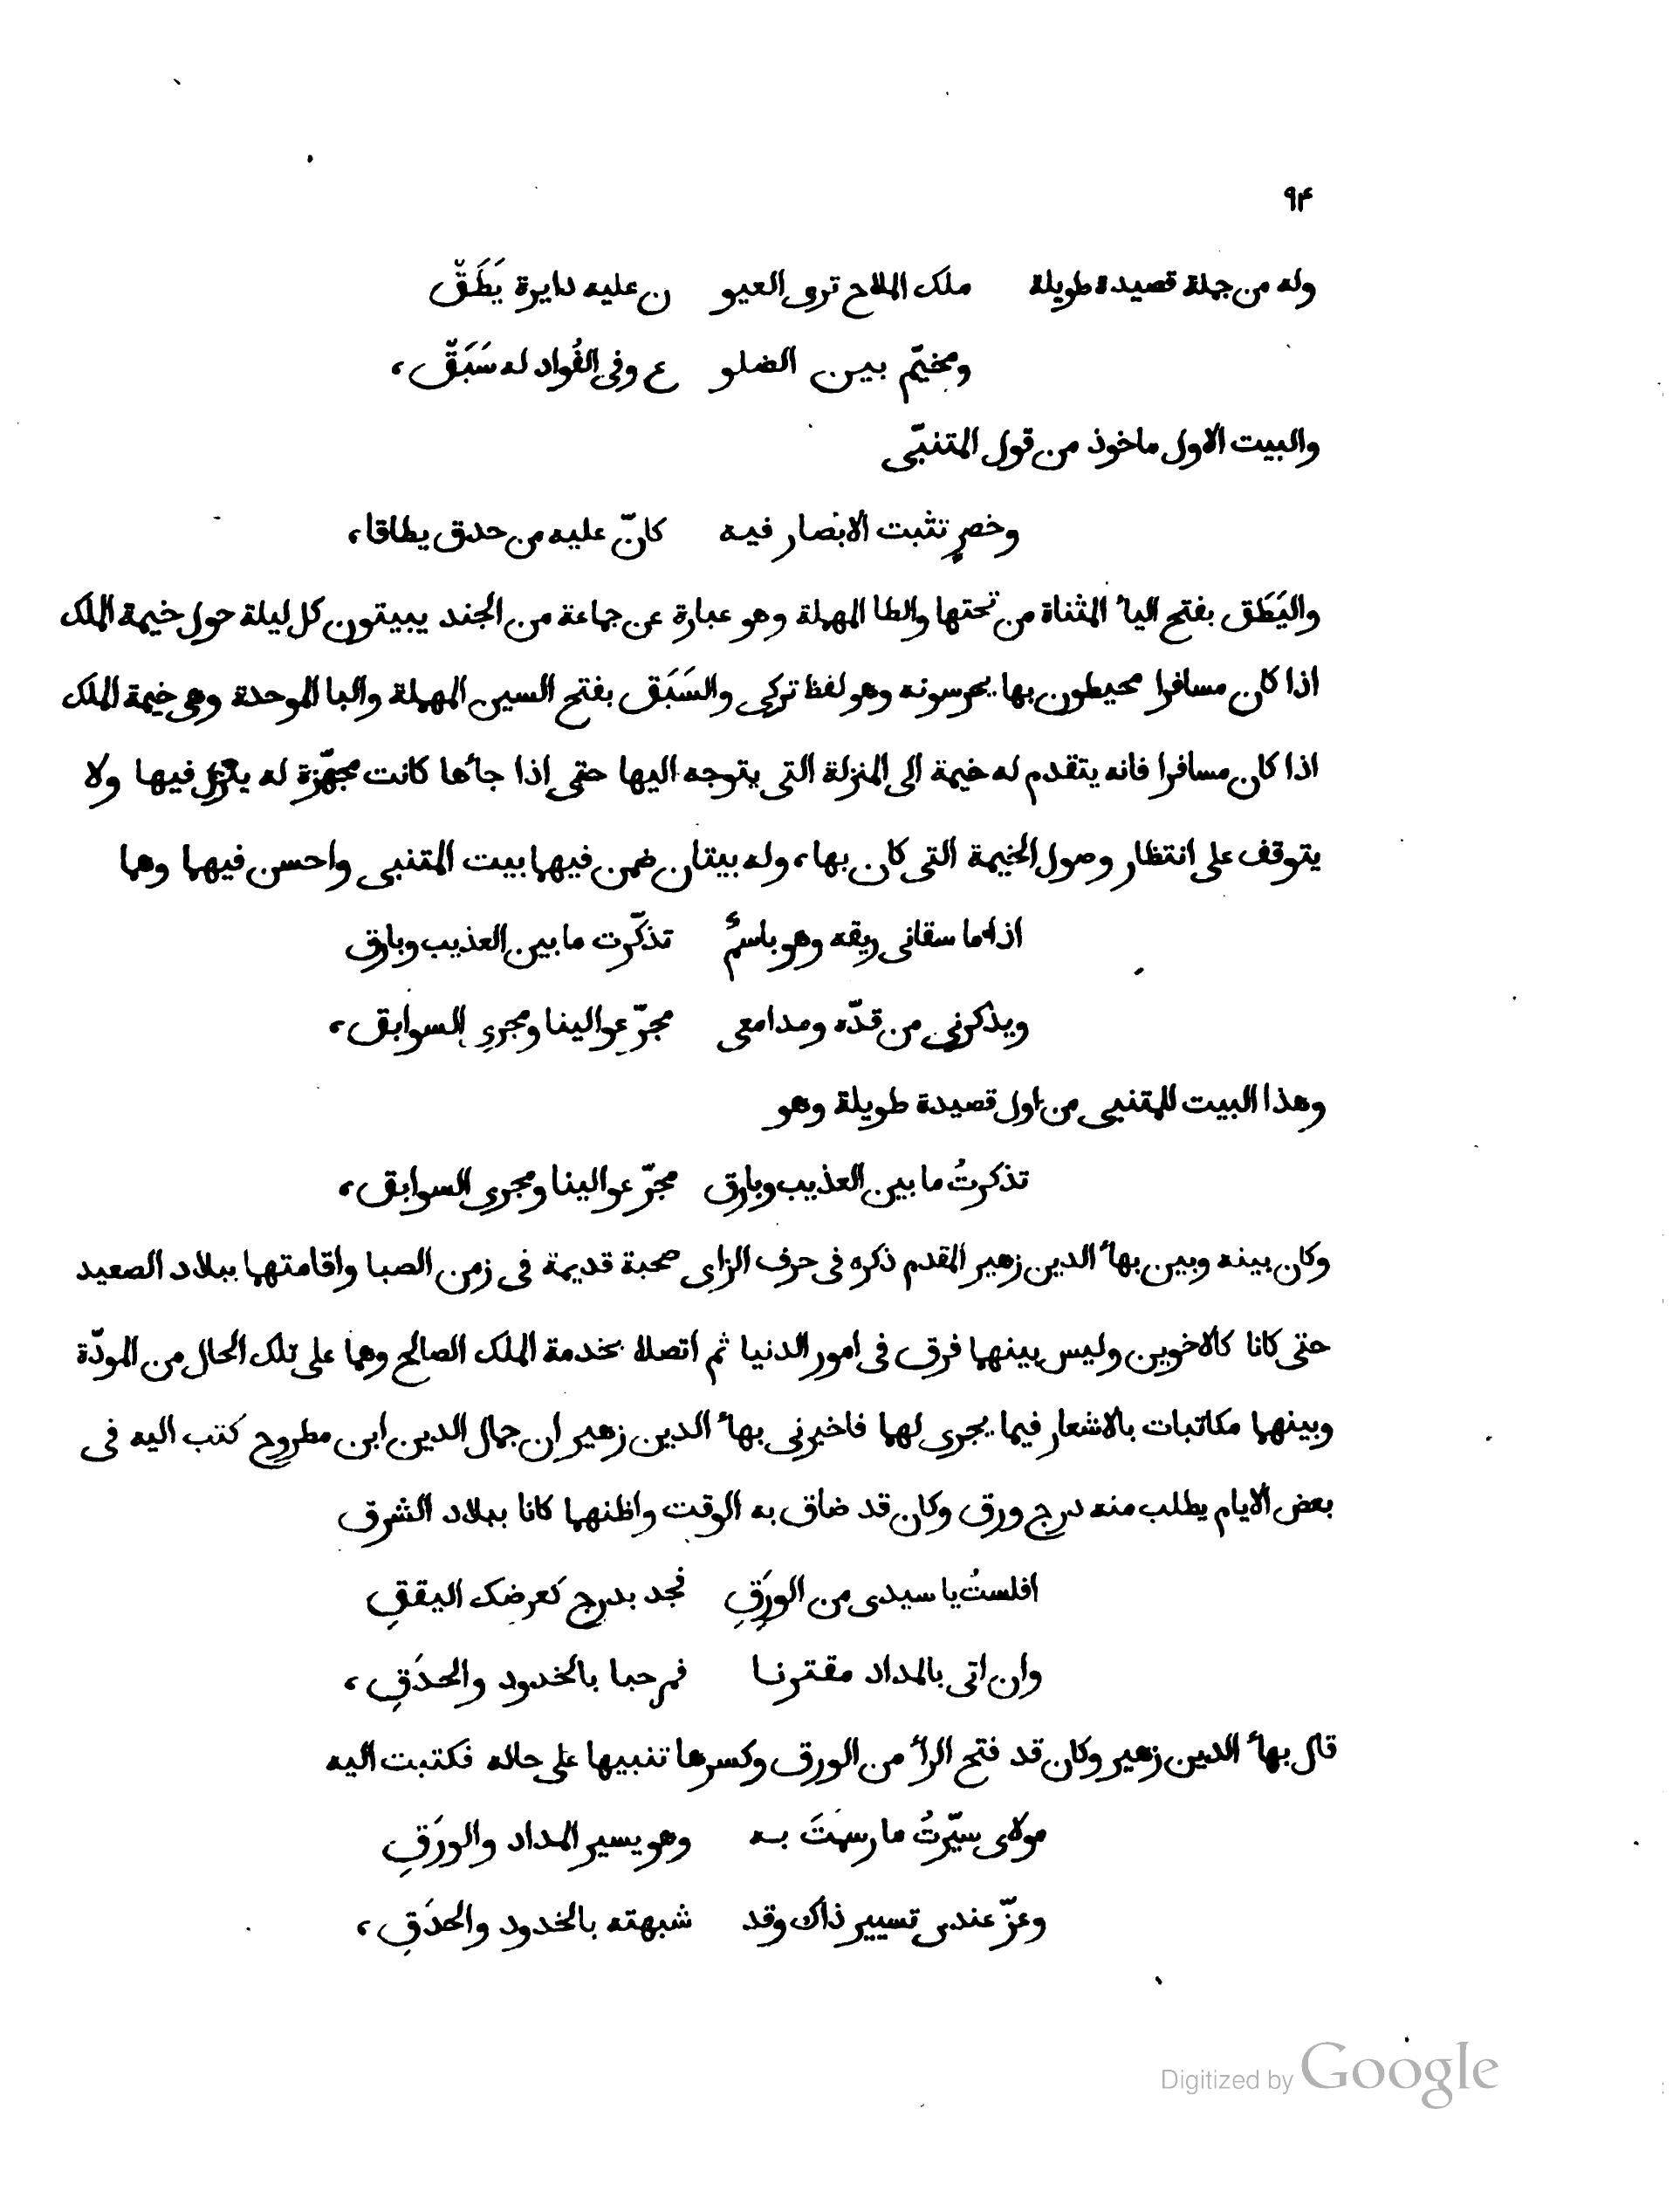 ٩٤
وله من جملة قصيدة طويلة ملك الملاح ترى العيو ن عليه دايرة يَطَقْ
ومخيّم بين الضلو ع وفى الفُواد له سَبَقْ،
والبيت الاول ماخوذ من قول المتنبّى
وخصرٍ تثبت الابصار فيه كانّ عليه من حدق يطاقا،
واليَطَق بفتح الياء المثناة من تحتها والطا المهملة وهو عبارة عن جماعة من الجند يبيتون كل ليلة حول خيمة الملك
اذا كان مسافرا محيطون بها يحرسونه وهو لفظ تركى والسَبَق بفتح السين المهملة والبا الموحدة وهى خيمة الملك
اذا كان مسافرا فانه يتقدم له خيمة الى المنزلة التى يتوجه اليها حتى اذا جاءها كانت مجهّزة له ينزل فيها ولا
يتوقف على انتظار وصول الخيمة التى كان بها، وله بيتان ضمن فيهما بيت المتنبى واحسن فيهما وهما
اذا ما سقانى ريقه وهو باسمٌ تذكّرت ما بين العذيب وبارق
ويذكرنى من قدّه ومدامعى مجرّ عوالينا ومجرى السوابق،
وهذا البيت للمتنبى من اول قصيدة طويلة وهو
تذكرتُ ما بين العذيب وبارق مجرّ عوالينا ومجرى السوابق،
وكان بينه وبين بهاء الدين زهير المقدم ذكره فى حرف الزاى صحبة قديمة فى زمن الصبا واقامتهما ببلاد الصعيد
حتى كانا كالاخوين وليس بينهما فرق فى امور الدنيا ثم اتصلا بخدمة الملك الصالح وهما على تلك الحال من المودّة
وبينهما مكاتبات بالاشعار فيما يجرى لهما فاخبرنى بهاء الدين زهير ان جمال الدين ابن مطروح كتب اليه فى
بعض الايام يطلب منه درج ورق وكان قد ضاق به الوقت واظنهما كانا ببلاد الشرق
افلستُ يا سيدى من الورَِقِ فجد بدرج كعرضك اليققِ
وان اتى بالمداد مقترنا فمرحبا بالخدود والحدَقِ،
قال بهاء الدين زهير وكان قد فتح الراء من الورق وكسرها تنبيها على حاله فكتبت اليه
مولاى سيّرتُ ما رسمتَ به وهو يسير المداد والورَقِ
وعزّ عندى تسيير ذاك وقد شبهته بالخدود والحدَقِ،
Digitized by Google